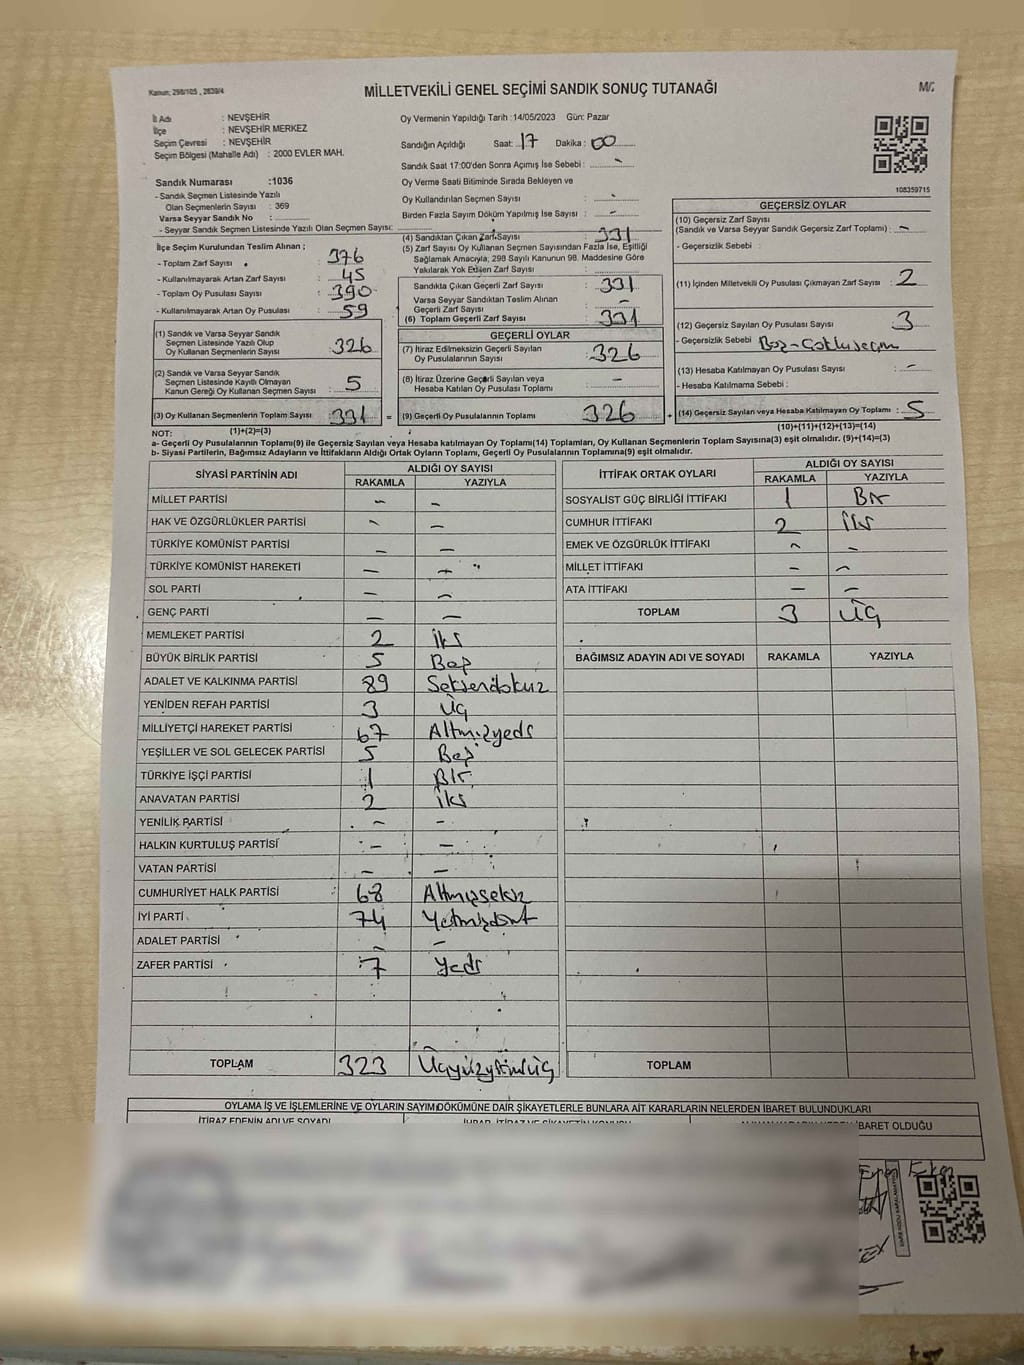 Kanun: 298/105 , 2839/4
MİLLETVEKİLİ GENEL SEÇİMİ SANDIK SONUÇ TUTANAĞI
İl Adı : NEVŞEHİR
İlçe : NEVŞEHİR MERKEZ
Seçim Çevresi : NEVŞEHİR
Seçim Bölgesi (Mahalle Adı) : 2000 EVLER MAH.
Oy Vermenin Yapıldığı Tarih :14/05/2023 Gün: Pazar
Sandığın Açıldığı Saat: 17 Dakika : 00
Sandık Saat 17:00'den Sonra Açılmış İse Sebebi : -
Oy Verme Saati Bitiminde Sırada Bekleyen ve
Oy Kullandırılan Seçmen Sayısı : -
Birden Fazla Sayım Döküm Yapılmış İse Sayısı : -
108359715
Sandık Numarası :1036
- Sandık Seçmen Listesinde Yazılı
Olan Seçmenlerin Sayısı : 369
Varsa Seyyar Sandık No :
- Seyyar Sandık Seçmen Listesinde Yazılı Olan Seçmen Sayısı:
İlçe Seçim Kurulundan Teslim Alınan ;
- Toplam Zarf Sayısı : 376
- Kullanılmayarak Artan Zarf Sayısı : 45
- Toplam Oy Pusulası Sayısı : 390
- Kullanılmayarak Artan Oy Pusulası : 59
(1) Sandık ve Varsa Seyyar Sandık
Seçmen Listesinde Yazılı Olup
Oy Kullanan Seçmenlerin Sayısı : 326
(2) Sandık ve Varsa Seyyar Sandık
Seçmen Listesinde Kayıtlı Olmayan
Kanun Gereği Oy Kullanan Seçmen Sayısı : 5
(3) Oy Kullanan Seçmenlerin Toplam Sayısı : 331 =
(1)+(2)=(3)
(4) Sandıktan Çıkan Zarf Sayısı : 331
(5) Zarf Sayısı Oy Kullanan Seçmen Sayısından Fazla İse, Eşitliği
Sağlamak Amacıyla; 298 Sayılı Kanunun 98. Maddesine Göre
Yakılarak Yok Edilen Zarf Sayısı :
Sandıkta Çıkan Geçerli Zarf Sayısı : 331
Varsa Seyyar Sandıktan Teslim Alınan
Geçerli Zarf Sayısı : -
(6) Toplam Geçerli Zarf Sayısı : 331
GEÇERLİ OYLAR
(7) İtiraz Edilmeksizin Geçerli Sayılan
Oy Pusulalarının Sayısı : 326
(8) İtiraz Üzerine Geçerli Sayılan veya
Hesaba Katılan Oy Pusulası Toplamı : -
(9) Geçerli Oy Pusulalarının Toplamı : 326 +
GEÇERSİZ OYLAR
(10) Geçersiz Zarf Sayısı
(Sandık ve Varsa Seyyar Sandık Geçersiz Zarf Toplamı) : -
- Geçersizlik Sebebi :
(11) İçinden Milletvekili Oy Pusulası Çıkmayan Zarf Sayısı : 2
(12) Geçersiz Sayılan Oy Pusulası Sayısı : 3
- Geçersizlik Sebebi :
(13) Hesaba Katılmayan Oy Pusulası Sayısı : -
- Hesaba Katılmama Sebebi :
(14) Geçersiz Sayılan veya Hesaba Katılmayan Oy Toplamı : 5
(10)+(11)+(12)+(13)=(14)
NOT:
a- Geçerli Oy Pusulalarının Toplamı(9) ile Geçersiz Sayılan veya Hesaba katılmayan Oy Toplamı(14) Toplamları, Oy Kullanan Seçmenlerin Toplam Sayısına(3) eşit olmalıdır. (9)+(14)=(3)
b- Siyasi Partilerin, Bağımsız Adayların ve İttifakların Aldığı Ortak Oyların Toplamı, Geçerli Oy Pusulalarının Toplamına(9) eşit olmalıdır.
SİYASİ PARTİNİN ADI ALDIĞI OY SAYISI
RAKAMLA YAZIYLA
MİLLET PARTİSİ - -
HAK VE ÖZGÜRLÜKLER PARTİSİ - -
TÜRKİYE KOMÜNİST PARTİSİ - -
TÜRKİYE KOMÜNİST HAREKETİ - -
SOL PARTİ - -
GENÇ PARTİ - -
MEMLEKET PARTİSİ 2 iki
BÜYÜK BİRLİK PARTİSİ 5 Beş
ADALET VE KALKINMA PARTİSİ 89 Seksendokuz
YENİDEN REFAH PARTİSİ 3 Üç
MİLLİYETÇİ HAREKET PARTİSİ 67 Altmışyedi
YEŞİLLER VE SOL GELECEK PARTİSİ 5 Beş
TÜRKİYE İŞÇİ PARTİSİ 1 Bir
ANAVATAN PARTİSİ 2 iki
YENİLİK PARTİSİ - -
HALKIN KURTULUŞ PARTİSİ - -
VATAN PARTİSİ - -
CUMHURİYET HALK PARTİSİ 68 Altmışsekiz
İYİ PARTİ 74 Yetmişdört
ADALET PARTİSİ - -
ZAFER PARTİSİ 7 Yedi
TOPLAM 323 Üçyüzyirmiüç
İTTİFAK ORTAK OYLARI ALDIĞI OY SAYISI
RAKAMLA YAZIYLA
SOSYALİST GÜÇ BİRLİĞİ İTTİFAKI 1 Bir
CUMHUR İTTİFAKI 2 İki
EMEK VE ÖZGÜRLÜK İTTİFAKI - -
MİLLET İTTİFAKI - -
ATA İTTİFAKI - -
TOPLAM 3 Üç
BAĞIMSIZ ADAYIN ADI VE SOYADI RAKAMLA YAZIYLA
TOPLAM
OYLAMA İŞ VE İŞLEMLERİNE VE OYLARIN SAYIM DÖKÜMÜNE DAİR ŞİKAYETLERLE BUNLARA AİT KARARLARIN NELERDEN İBARET BULUNDUKLARI
İTİRAZ EDENİN ADI VE SOYADI
İBARET OLDUĞU